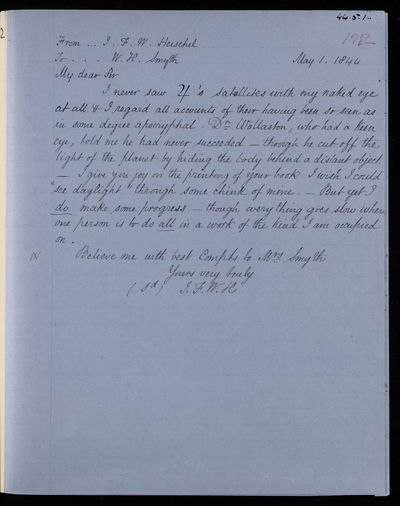 44.5.1.
192
2
From .. J. F. W. Herschel
To . . . W. H. Smyth May 1. 1844
My dear Sir
I never saw ♃'s satellites with my naked eye
at all & I regard all accounts of their having been so seen as
in some degree apocryphal. Dr. Wollaston, who had a keen
eye, told me he had never succeeded – though he cut off the
light of the planet by hiding the body behind a distant object.
— I give you joy on the printing of your book I wish I could
"see daylight" through some chink of mine. — But yet I
do make some progress — though everything goes slow when
one person is to do all in a work of the kind I am occupied
on.
Believe me with best Compts to Mrs. Smyth
Yours very truly
(Sd) J. F. W. H